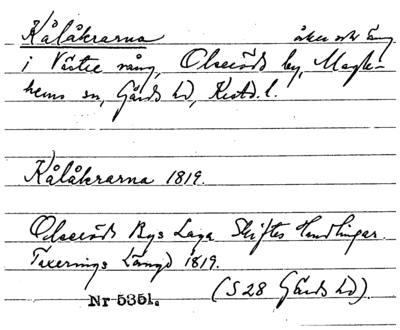 Kålåkrarna åker och äng
i Västre vång, Olseröds by, Magle-
hems sn, Gärds hd, Kristd. l.
Kålåkrarna 1819.
Olseröds Bys Laga Skiftes Handlingar.
Taxerings Längd 1819.
Nr 5351. (S 28 Gärds hd).